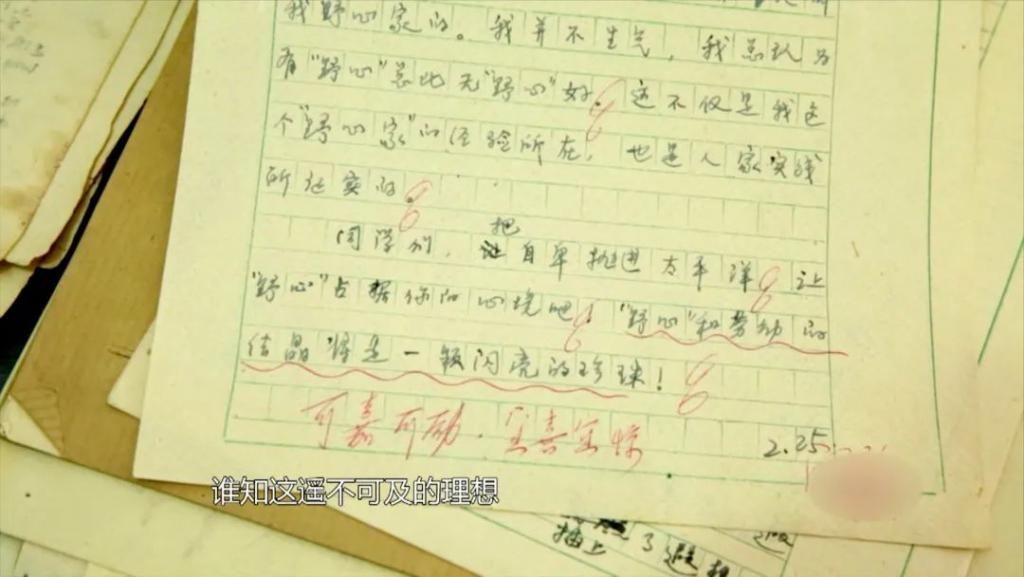 我野心家的。我并不生气,我总认为
有“野心”总比无“野心”好。这不仅是我这
个“野心家”的经验所在,也是人家实践
所证实的。
同学们,把自卑抛进太平洋。让
“野心”占据你的心境吧!“野心”和劳动的
结晶怪是一颗闪亮的珍珠!
可嘉可励、实喜实惊
2.25
谁知这遥不可及的理想
插上了遐想